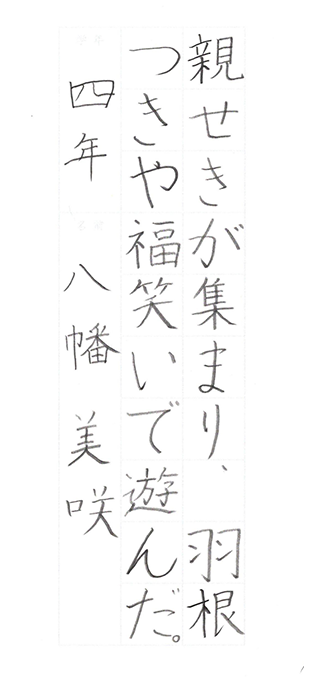 親せきが集まり、羽根
つきや福笑いで遊んだ。
四年 八幡 美咲